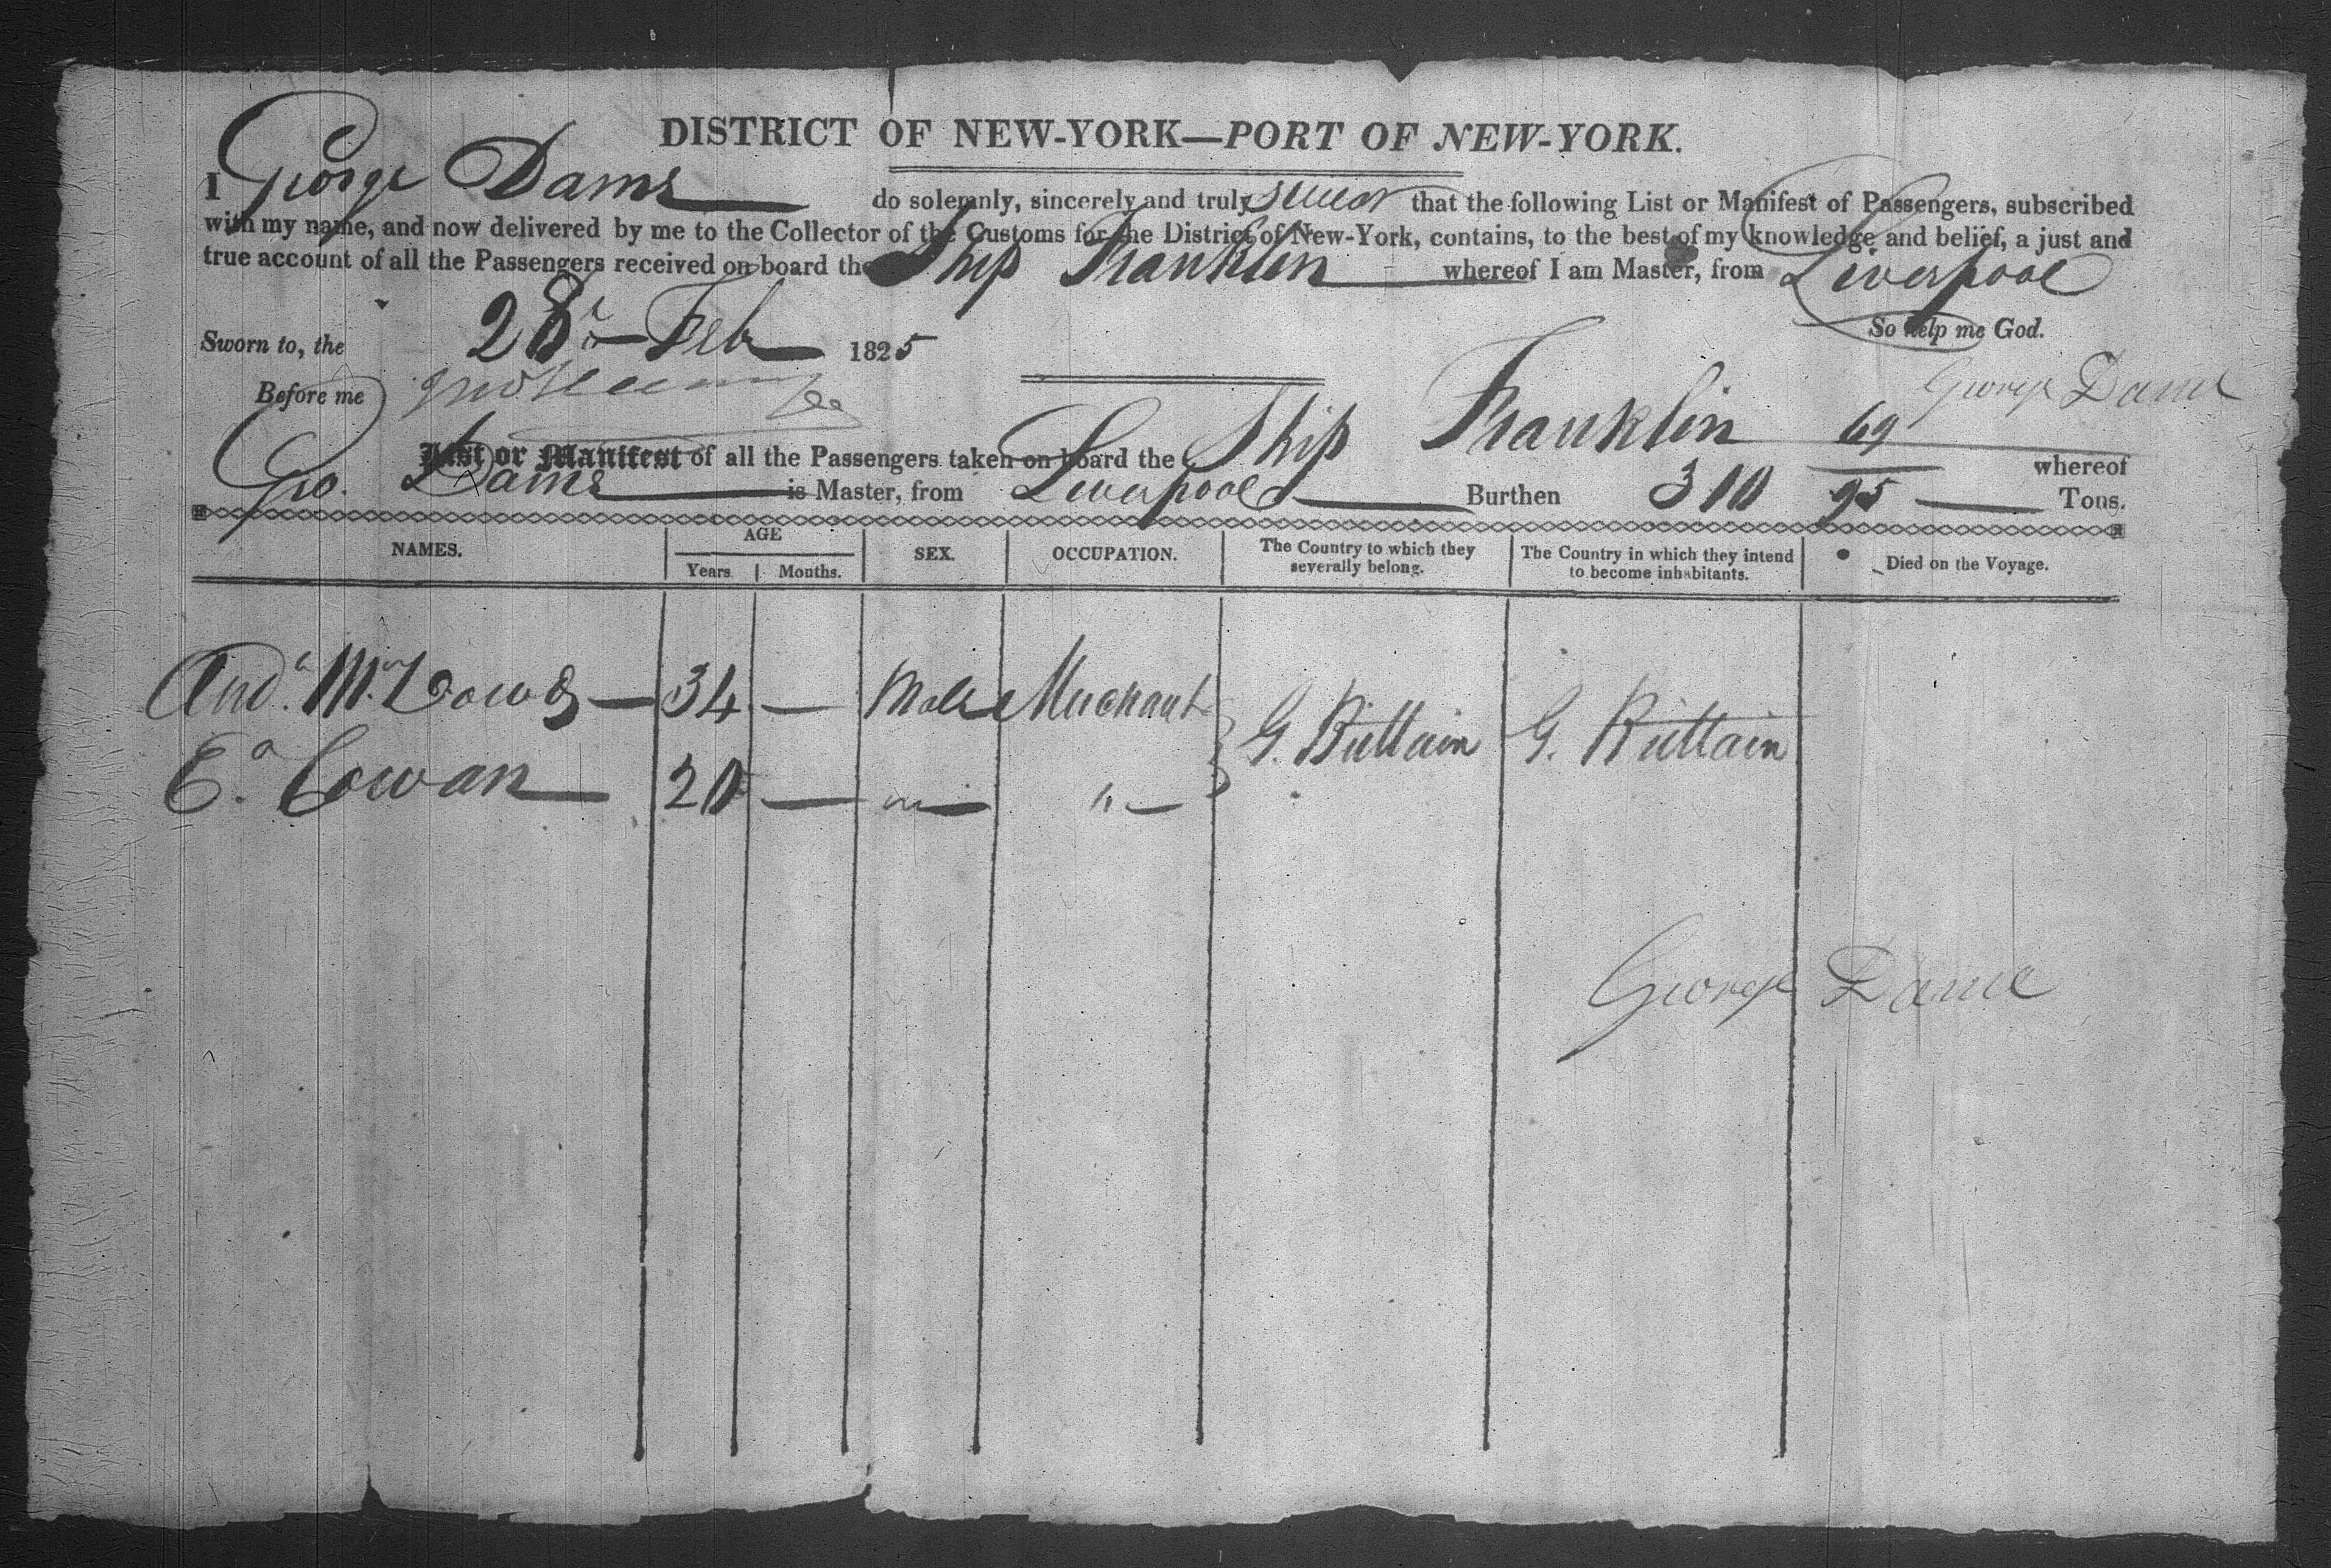 DISTRICT OF NEW-YORK—PORT OF NEW-YORK.
I George Dame do solemnly, sincerely and truly swear that the following List or Manifest of Passengers, subscribed
with my name, and now delivered by me to the Collector of the Customs for the District of New-York, contains, to the best of my knowledge and belief, a just and
true account of all the Passengers received on board the Ship Franklin whereof I am Master, from Liverpool
So help me God.
Sworn to, the 28 Feb 1825
George Dame
Before me
List or Manifest of all the Passengers taken on board the Ship Franklin whereof
Geo. Dame is Master, from Liverpool Burthen 310 69/95 Tons.
NAMES. AGE SEX. OCCUPATION. The Country to which they severally belong. The Country in which they intend to become inhabitants. Died on the Voyage.
Years Months.
And. — 34 — Male Merchant G. Brittain G. Brittain
E. Cowan — 20 — " — " —
George Dame